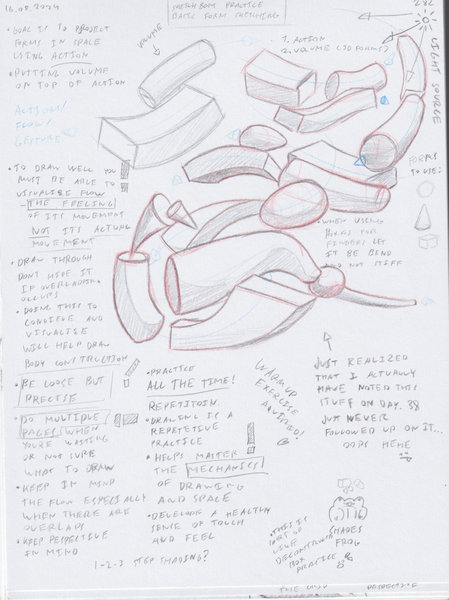 16.08.2024
SKETCHBOOK PRACTICE
BASIC FORM SKETCHING
282
• GOAL IS TO PROJECT
FORMS IN SPACE
USING ACTION
• PUTTING VOLUME
ON TOP OF ACTION
VOLUME
1. ACTION
2. VOLUME (3D FORMS)
LIGHT SOURCE
ACTION/
FLOW/
GESTURE
FORMS
TO USE:
• TO DRAW WELL YOU
MUST BE ABLE TO
VISUALISE FLOW
- THE FEELING
OF ITS MOVEMENT
NOT ITS ACTUAL
MOVEMENT
• DRAW THROUGH
DONT HIDE IT
IF OVERLAPPING
OCCURS
• DOING THIS TO
CONCIEVE AND
VISUALISE
WILL HELP DRAW
BODY CONSTRUCTION
• WHEN USING
BOXES FOR
FINGERS LET
IT BE BEND
AND NOT STIFF
• BE LOOSE BUT
PRECISE
• DO MULTIPLE
PAGES WHEN
YOU'RE WAITING
OR NOT SURE
WHAT TO DRAW
• KEEP IN MIND
THE FLOW ESPECIALLY
WHEN THERE ARE
OVERLAPS
• KEEP PERSPECTIVE
IN MIND
• PRACTICE
ALL THE TIME!
REPETITOIN.
• DRAWING IS A
REPETETIVE
PRACTICE
• HELPS MASTER
THE MECHANICS
OF DRAWING
AND SPACE
• DEVELOP A HEALTHY
SENSE OF TOUCH
AND FEEL
1-2-3 STEP SHADING?
WARM UP
EXERCISE
JUST REALIZED
THAT I ACTUALLY
HAVE NOTED THIS
STUFF ON DAY. 38
JUST NEVER
FOLLOWED UP ON IT...
OOPS HEHE
• THIS IS
PART OF
BOX
PRACTICE
SHAPES
FROG